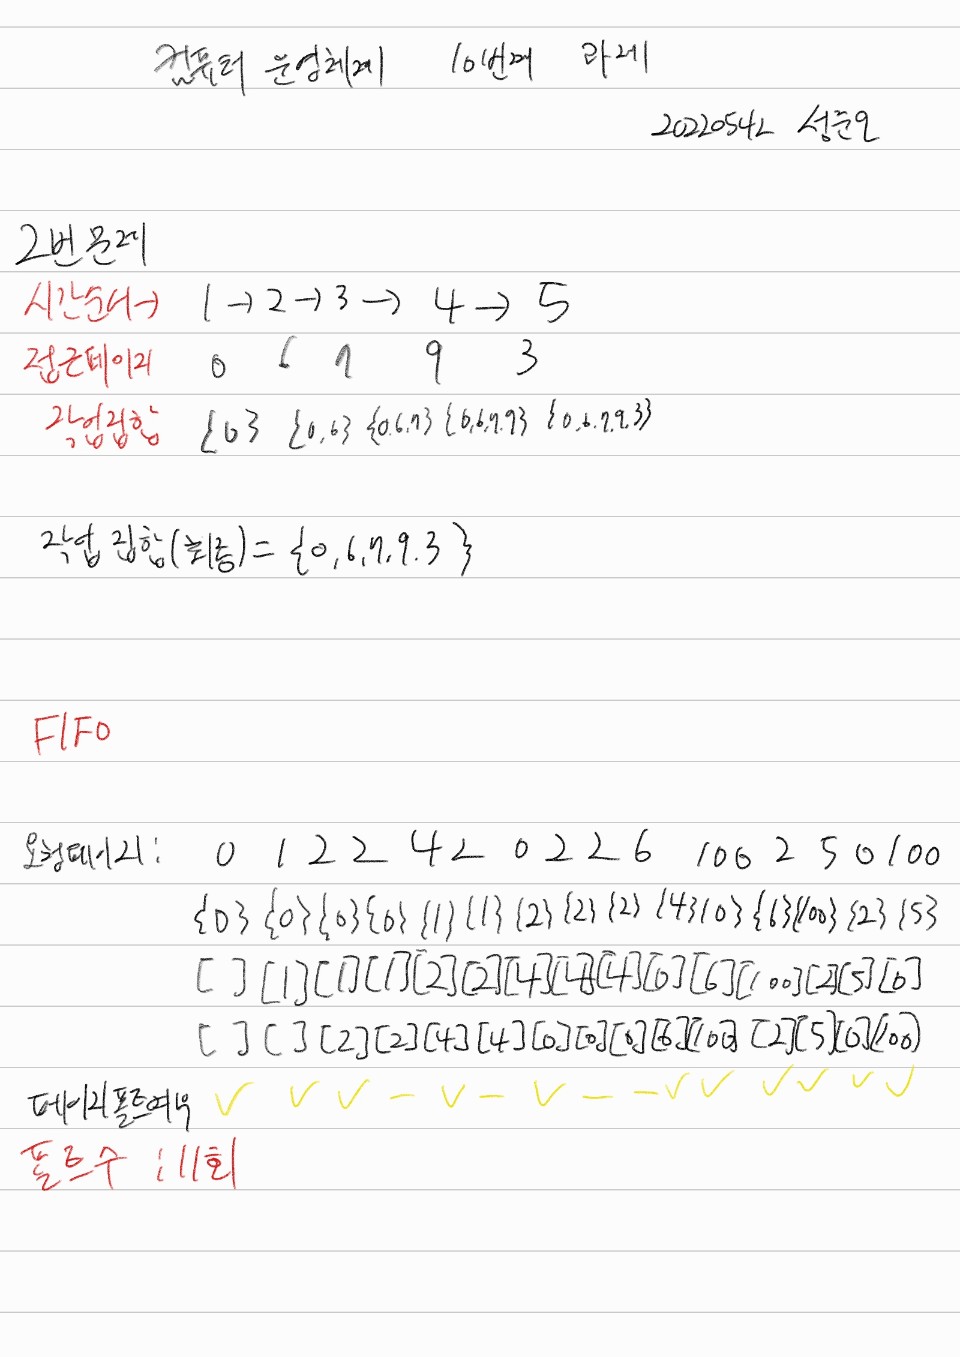 컴퓨터 운영체제 10번째 과제
20220542 성준오
2번문제
시간순서→ 1→2→3→ 4→5
접근페이지 0 6 7 9 3
작업집합 {0} {0,6} {0.6.7} {0,6,7.9} {0,6.7.9.3}
작업 집합(최종)= {0,6,7,9.3}
FIFO
요청페이지: 0 1 2 2 4 2 0 2 2 6 100 2 5 0 100
{0} {0} {0} {0} {1} {1} {2} {2} {2} {4} {0} {6} {100} {2} {5}
[ ] [1] [1] [1] [2] [2] [4] [4] [4] [0] [6] [100] [2] [5] [0]
[ ] [ ] [2] [2] [4] [4] [0] [0] [0] [6] [100] [2] [5] [0] [100]
페이지폴트여부 ✓ ✓ ✓ – ✓ – ✓ – – ✓ ✓ ✓ ✓ ✓ ✓
폴트수 : 11회